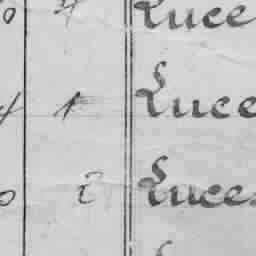 0 4 Luce
4 1 Luce
0 2 Luces